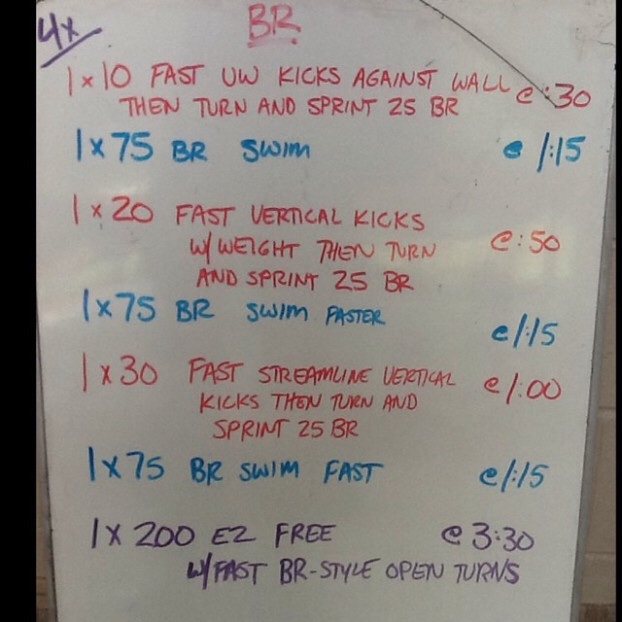 4x
BR
1 x 10 FAST UW KICKS AGAINST WALL @ :30
THEN TURN AND SPRINT 25 BR
1 x 75 BR SWIM @ 1:15
1 x 20 FAST VERTICAL KICKS
W/ WEIGHT THEN TURN @ :50
AND SPRINT 25 BR
1 x 75 BR SWIM FASTER
@ 1:15
1 x 30 FAST STREAMLINE VERTICAL @ 1:00
KICKS THEN TURN AND
SPRINT 25 BR
1 x 75 BR SWIM FAST @ 1:15
1 x 200 EZ FREE @ 3:30
W/ FAST BR-STYLE OPEN TURNS